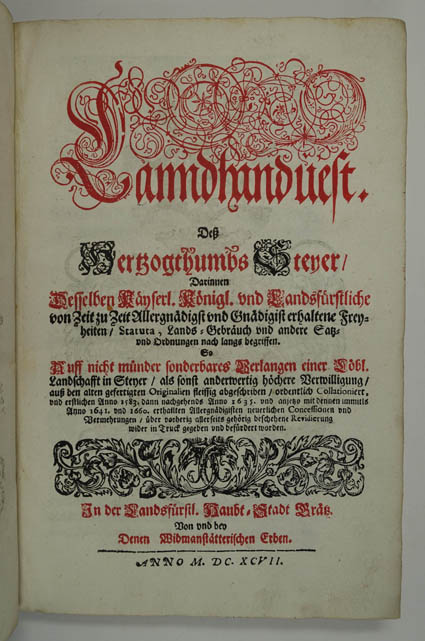 Lanndhandüest.
Deß
Hertzogthumbs Steyer/
Darinnen
Desselben Käyserl. Königl. vnd Landsfürstliche
von Zeit zu Zeit Allergnädigst vnd Gnädigist erhaltene Frey-
heiten/ Statuta, Lands-Gebräuch vnd andere Satz-
vnd Ordnungen nach langs begriffen.
So
Auff nicht münder sonderbares Verlangen einer Löbl.
Landschafft in Steyer/ als sonst anderwertig höchere Verwilligung/
auß den alten gefertigten Originalien fleissig abgeschriben/ ordentlich Collationiert,
vnd erstlichen Anno 1583. dann nachgehends Anno 1635. vnd anjetzo mit denen immitls
Anno 1641. vnd 1660. erthailten Allergnädigisten neuerlichen Concessionen vnd
Vermehrungen/ über vorherig allerseits gehörig beschehene Revidierung
wider in Truck gegeben vnd befürdert worden.
In der Landsfürstl. Haubt-Stadt Grätz.
Von vnd bey
Denen Widmanstätterischen Erben.
ANNO M. DC. XCVII.